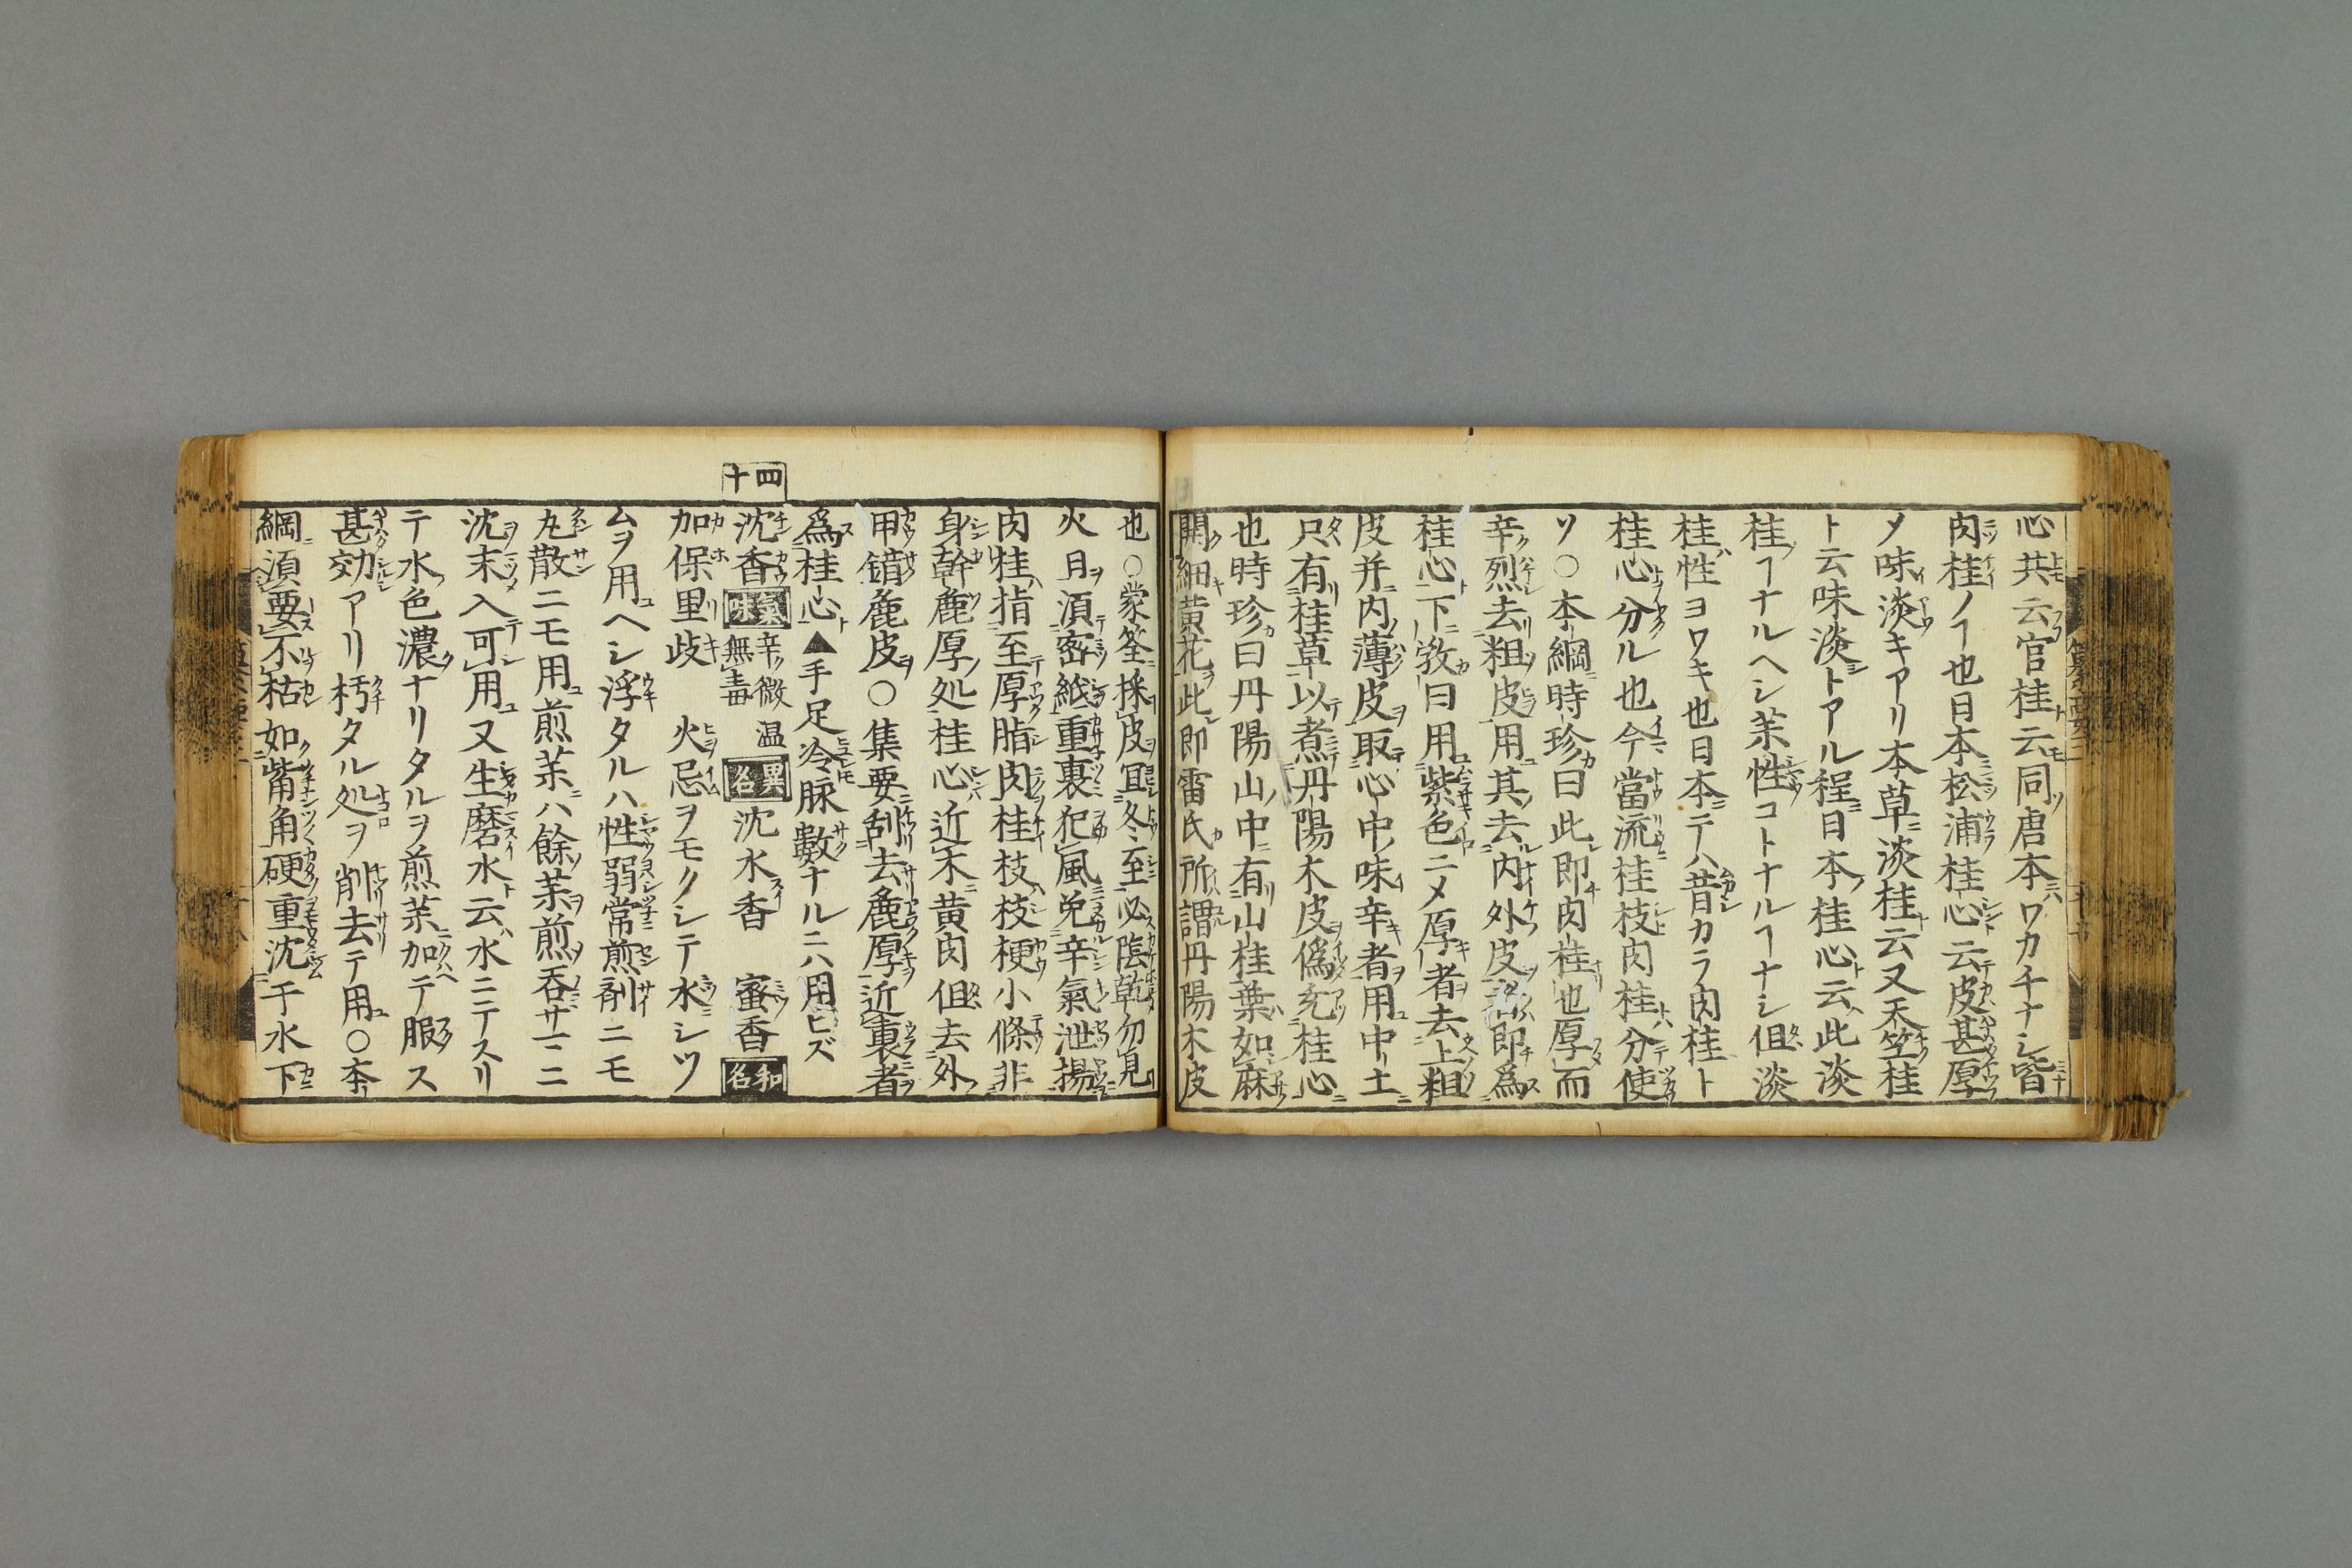 心共云官桂云同唐本ワカチナシ皆
肉桂ノヿ也日本松浦桂心云皮甚厚
メ味淡キアリ本草淡桂云又天竺桂
ト云味淡トアル程日本桂心云此淡
桂ヿナルヘシ茱性コトナルヿナシ但淡
桂性ヨワキ也日本テハ昔カラ肉桂ト
桂心分ル也今當流桂枝肉桂分使
ソ○本綱時珍曰此即肉桂也厚而
辛烈去粗皮用其去内外皮者即爲
桂心下斆曰用紫色ニメ厚者去上粗
皮并内薄皮取心中味辛者用中土
只有桂草以煮丹陽木皮偽充桂心
也時珍曰丹陽山中有山桂葉如麻
開細黄花此即雷氏所謂丹陽木皮
也○蒙筌採皮冝冬至必陰乾勿見
火日湏密紙重裹犯風免辛氣泄揚
肉桂指至厚脂肉桂枝枝梗小條非
身幹麁厚処桂心近木黄肉但去外
甲錯麁皮○集要刮去麁厚近裏者
爲桂心▲手足冷脉數ナルニハ用ヒズ
四十
沈香 氣味 辛微温無毒 異名 沈水香 蜜香 和名
加保里歧 火忌ヲモクシテ水シツ
ムヲ用ヘシ浮タルハ性弱常煎剤ニモ
丸散ニモ用煎茱ハ餘茱煎呑サーニニ
沈末入可用又生磨水云水ニテスリ
テ水色濃ナリタルヲ煎茱加テ服ス
甚効アリ朽タル処ヲ削去テ用○本
綱湏要不枯如觜角硬重沈于水下